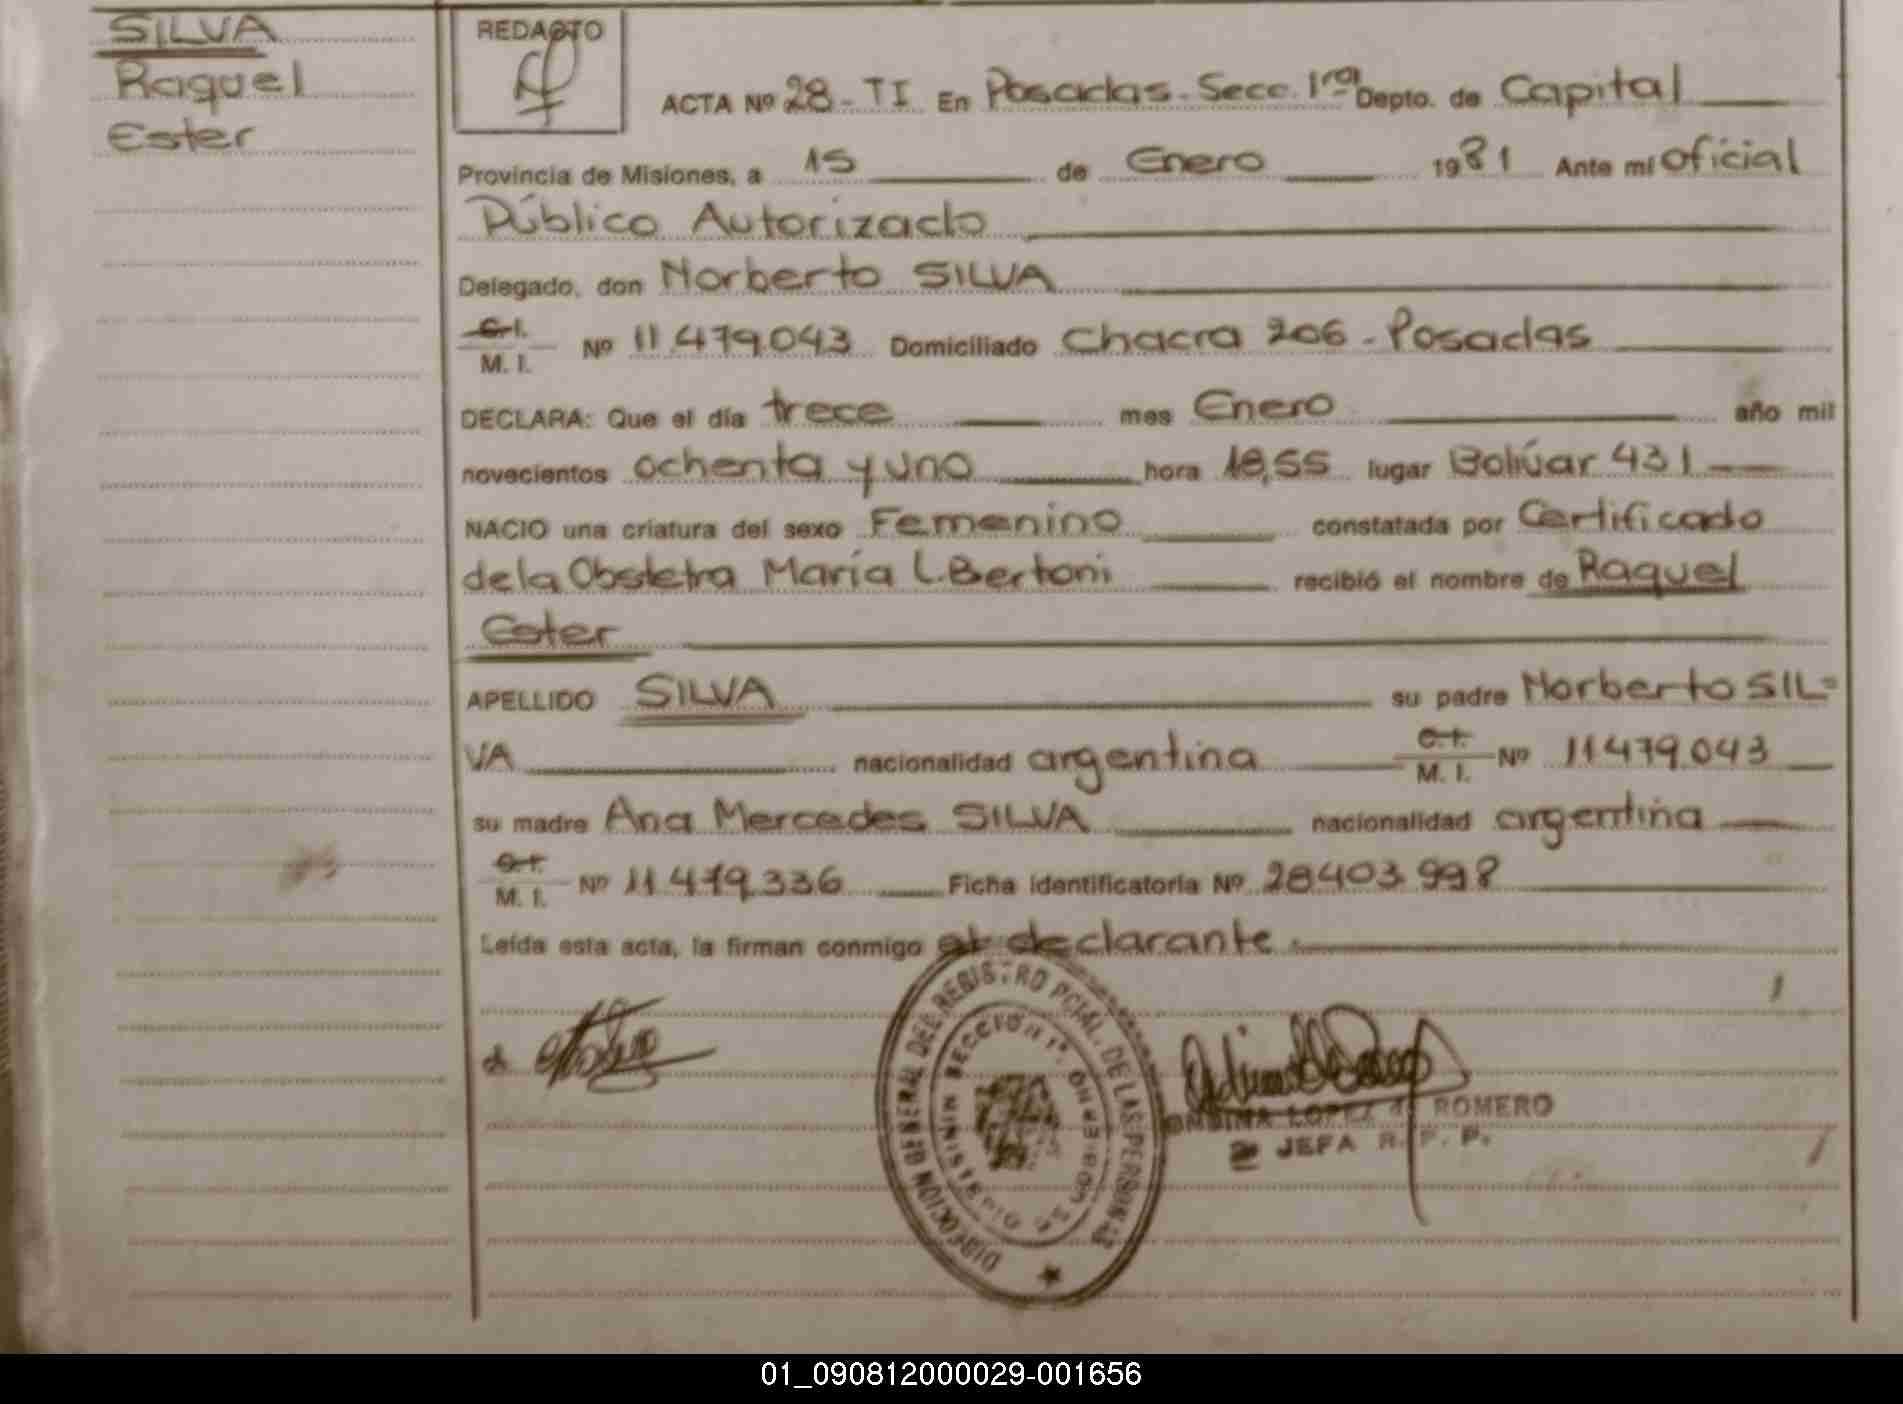 SILVA
Raquel
Ester
REDACTO
ACTA Nº 28 - TI En Posadas - Secc. 1ra Depto. de Capital
Provincia de Misiones, a 15 de Enero 1981 Ante mí oficial
Público Autorizado
Delegado, don Norberto SILVA
C.I.
M. I. Nº 11.479.043 Domiciliado Chacra 206 - Posadas
DECLARA: Que el día trece mes Enero año mil
novecientos ochenta y uno hora 18,55 lugar Bolívar 431
NACIO una criatura del sexo Femenino constatada por Certificado
de la Obstetra María L. Bertoni recibió el nombre de Raquel
Ester
APELLIDO SILVA su padre Norberto SIL=
VA nacionalidad argentina C.I. M. I. Nº 11.479.043
su madre Ana Mercedes SILVA nacionalidad argentina
C.I.
M. I. Nº 11.479.336 Ficha identificatoria Nº 28.403.998
Leída esta acta, la firman conmigo el declarante.
DIRECCION GENERAL DEL REGISTRO PCIAL. DE LAS PERSONAS
SECCIÓN 1ª
LOPEZ de ROMERO
JEFA R. P. P.
01_090812000029-001656